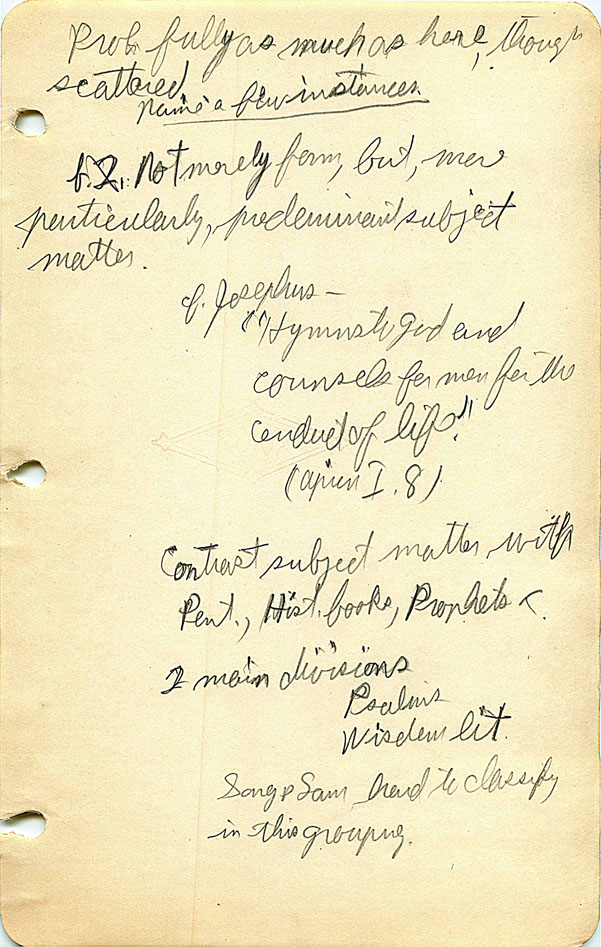 Prob. fully as much as here, though
scattered
Name a few instances
b.2. Not merely form, but, more
particularly, predominant subject
matter.
cf. Josephus –
"Hymns to God and
counsels for men for the
conduct of life."
(Apion I. 8)
Contrast subject matter with
Pent., Hist. books, Prophets
2 main divisions
Psalms
Wisdom lit.
Song & Lam hard to classify
in this grouping.